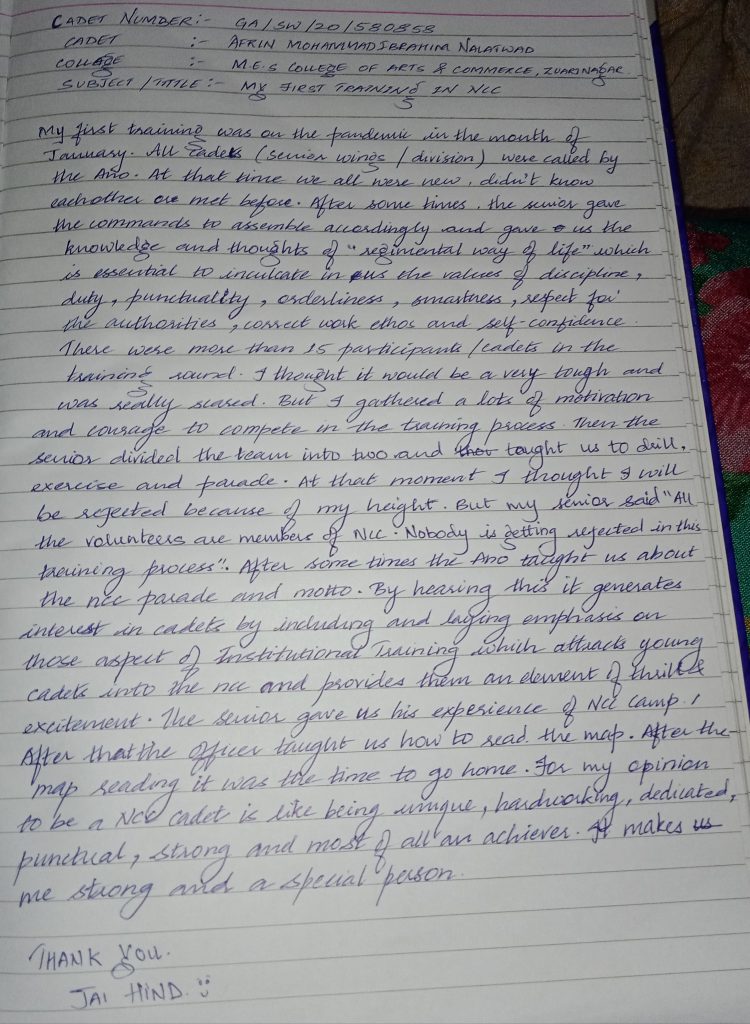 CADET NUMBER:- GA/SW/20/580858
CADET :- AFRIN MOHAMMADIBRAHIM NALATWAD
COLLAGE :- M.E.S COLLEGE OF ARTS & COMMERCE, ZUARINAGAR
SUBJECT / TITLE :- MY FIRST TRAINING IN NCC
My first training was on the pandemic in the month of
January. All cadets (senior wings / division) were called by
the Ano. At that time we all were new, didn't know
eachother or met before. After some times, the senior gave
the commands to assemble accordingly and gave us the
knowledge and thoughts of "regimental way of life" which
is essential to inculcate in us the values of discipline,
duty, punctuality, orderliness, smartness, respect for
the authorities, correct work ethos and self-confidence.
There were more than 15 participants / cadets in the
training round. I thought it would be a very tough and
was really scared. But I gathered a lots of motivation
and courage to compete in the training process. Then the
senior divided the team into two and taught us to drill,
exercise and parade. At that moment I thought I will
be rejected because of my height. But my senior said "All
the volunteers are members of NCC. Nobody is getting rejected in this
training process". After some times the Ano taught us about
the ncc parade and motto. By hearing this it generates
interest in cadets by including and laying emphasis on
those aspect of Institutional Training which attracts young
cadets into the ncc and provides them an element of thrill &
excitement. The senior gave us his experience of NCC camp.
After that the officer taught us how to read the map. After the
map reading it was the time to go home. For my opinion
to be a NCC cadet is like being unique, hardworking, dedicated,
punctual, strong and most of all an achiever. It makes us
me strong and a special person.
THANK YOU.
JAI HIND. :)